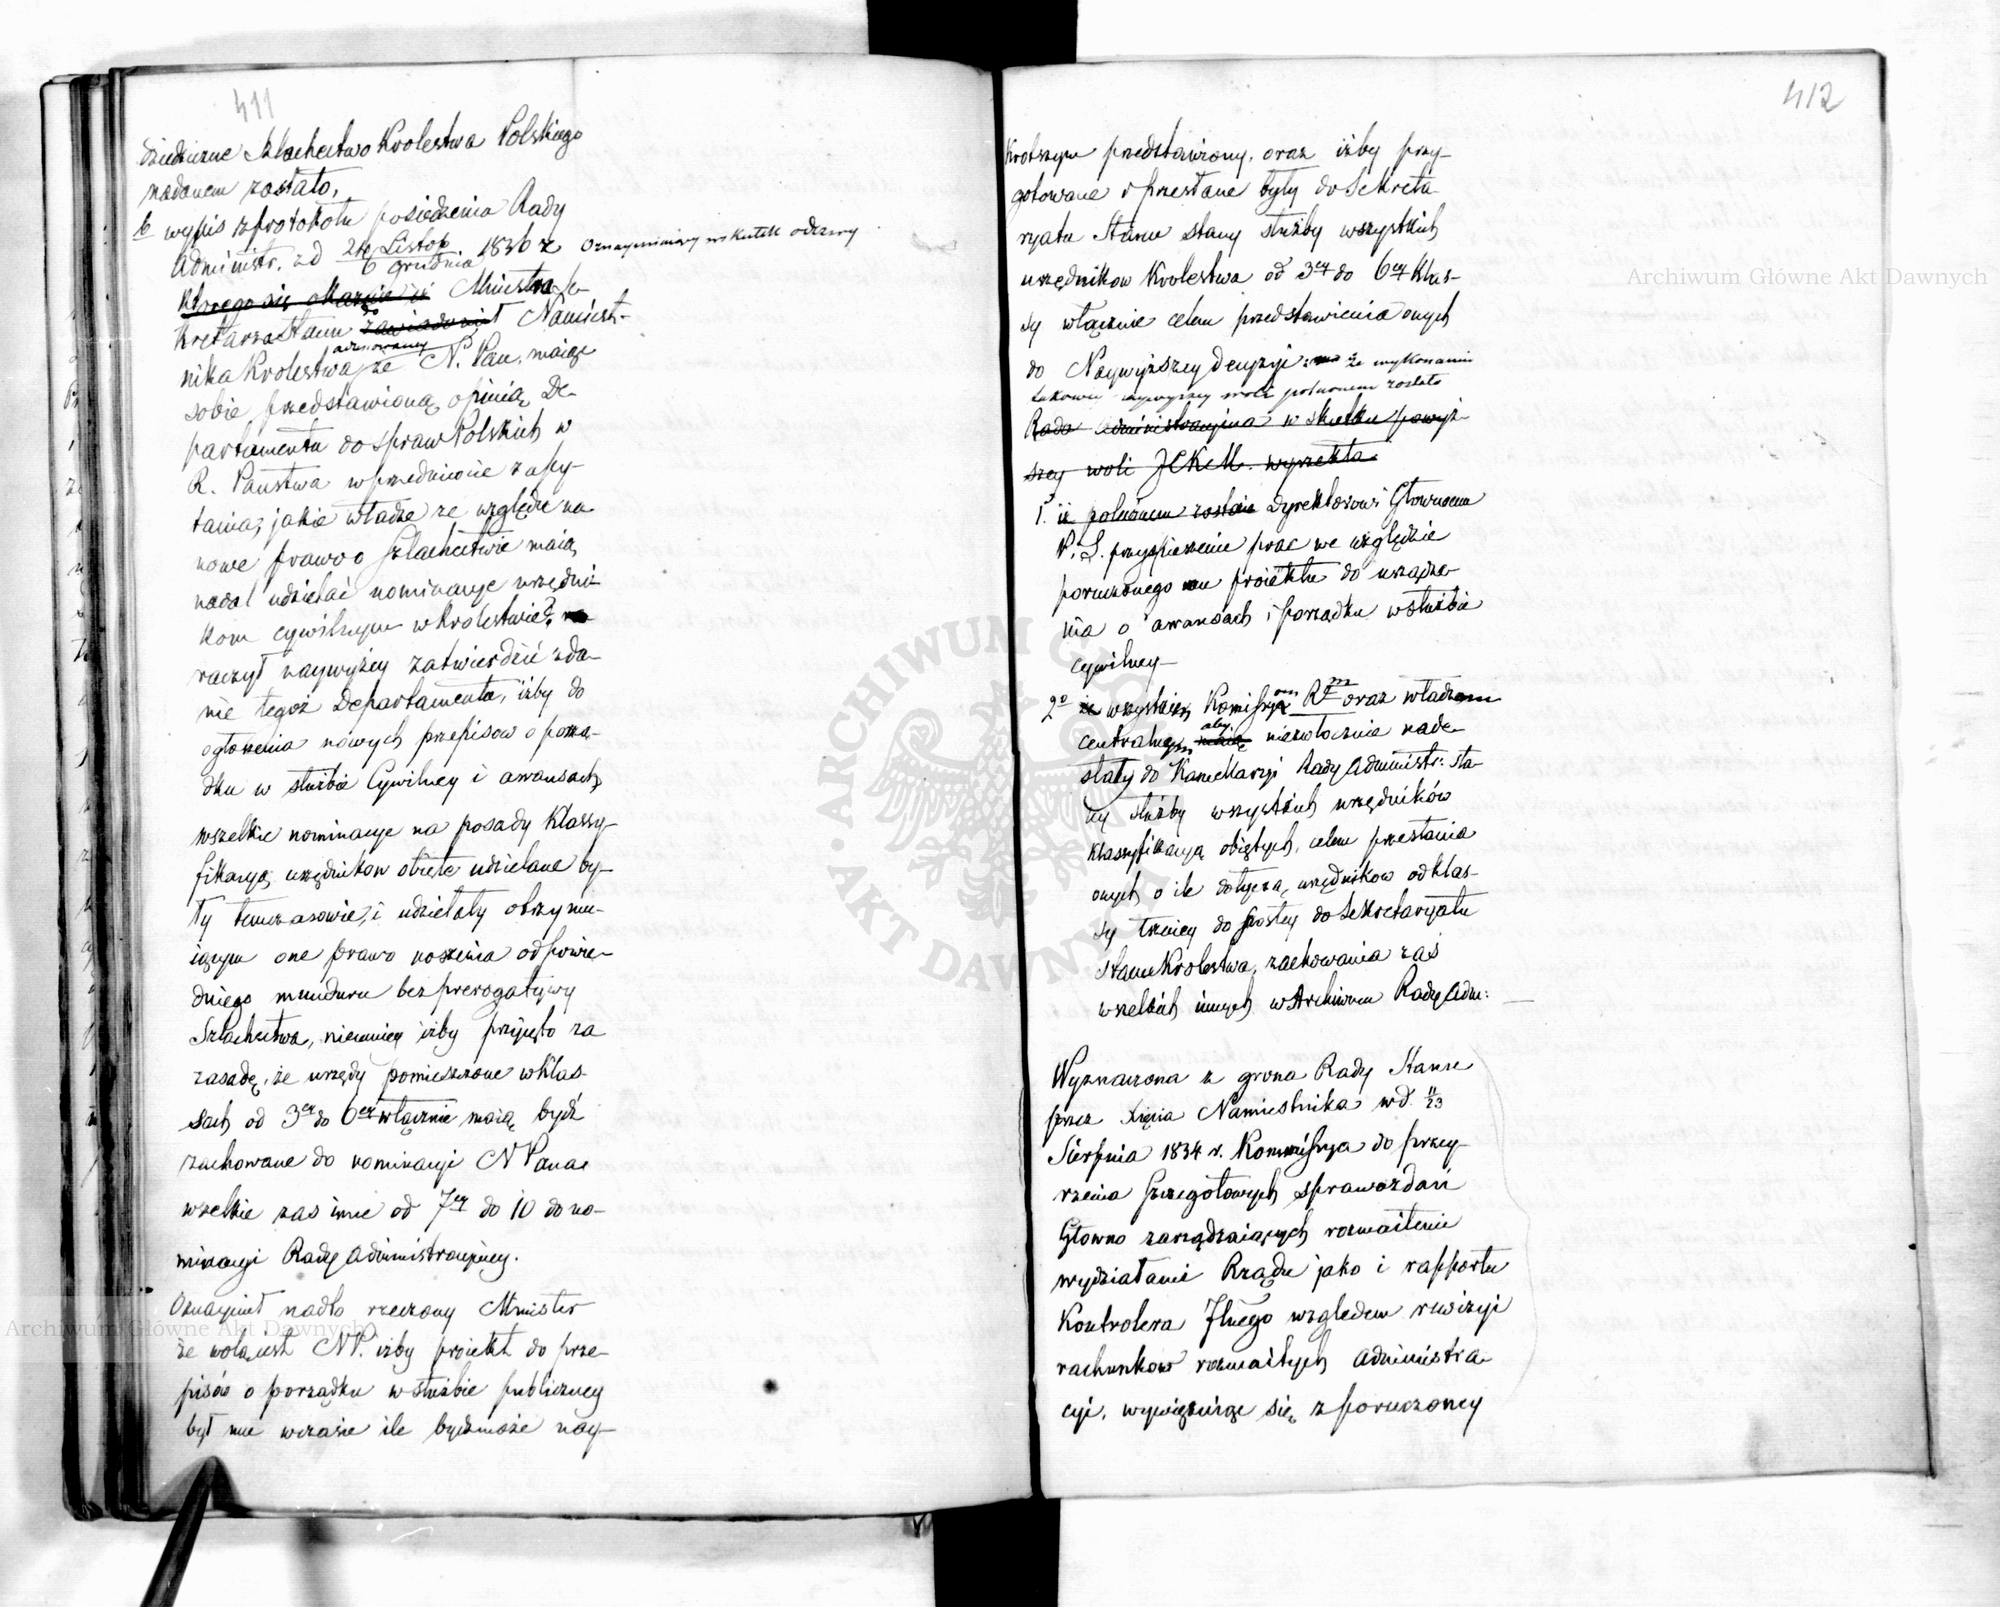 411
dziedziczne Szlachectwo Krolestwa Polskiego
nadanem zostało,
6 wypis z protokołu posiedzenia Rady
Administr. z d 24 Listop / 6 Grudnia 1836 r Oznaymuiący w skutek odezwy
którego się okazuie iż Ministra Se-
kretarza Stanu do zawiadomił Namiest-
nika Krolestwa adresowaney że N. Pan, maiąc
sobie przedstawioną opinią De-
partamentu do spraw Polskich w
R. Państwa w przedmiocie zapy-
tania, jakie władze ze względu na
nowe prawo o Szlachectwie maią
nadal udzielać nominacye urzędni-
kom cywilnym w Krolestwie?
raczył naywyżey zatwierdzić zda-
nie tegoż Departamentu, iżby do
ogłoszenia nowych przepisow o porzą-
dku w służbie Cywilney i awansach
wszelkie nominacye na posady Klassy-
fikacyą urzędnikow obięte udzielane by-
ły tymczasowie, i udzielały otrzymu-
iącym one prawo noszenia odpowie-
dniego munduru bez prerogatywy
Szlachectwa, niemniey iżby przyięto za
zasadę, że urzędy pomieszczone w klas-
sach od 3ey do 6ey włącznie maią bydź
zachowane do nominacyi N Pana
wszelkie zaś inne od 7ey do 10 do no-
minacyi Rady Administracyiney.
Oznaymił nadto rzeczony Minister
że wolą iest NP. iżby proiekt do prze-
pisów o porządku w służbie publiczney
był mu w czasie ile bydź może nay-
412
krotszym przedstawiony, oraz iżby przy-
gotowane i przesłane były do Sekreta-
ryatu Stanu stany służby wszystkich
urzędnikow Krolestwa od 3ey do 6ey klas-
sy włącznie celem przedstawienia onych
do Naywyższey decyzyi że wykonaniu
takowey naywyższey woli poleconem zostało
Rada Administracyina w skutku powyż-
szey woli JCKM. wyrzekła
1. iż poleconem zostanie Dyrektorowi Głownemu
P. S. przyspieszenie prac we względzie
poruczonego mu proiektu do urządze-
nia o awansach i porządku w służbie
cywilney
2º iż wszystkim Kommissyom Rm oraz władzom
centralnym aby maią niezwłocznie nade-
słały do Kancellaryi Rady Administr: sta-
ny służby wszystkich urzędników
klassyfikacyą obiętych, celem przesłania
onych o ile dotyczą urzędnikow od klas-
sy trzeciey do szostey do Sekretaryatu
Stanu Krolestwa, zachowania zaś
wszelkich innych w Archiwum Rady Adm:
Wyznaczona z grona Rady Stanu
przez Xięcia Namiestnika w d. 11/23
Sierpnia 1834 r. Kommissya do przey-
rzenia szczegołowych sprawozdań
Głowno zarządzaiących rozmaitemi
wydziałami Rządu jako i rapportu
Kontrolera Jlnego względem rewizyi
rachunkow rozmaitych Administra-
cyi, wywięzuiąc się z poruczoney
ARCHIWUM GŁÓWNE AKT DAWNYCH
Archiwum Główne Akt Dawnych
Archiwum Główne Akt Dawnych